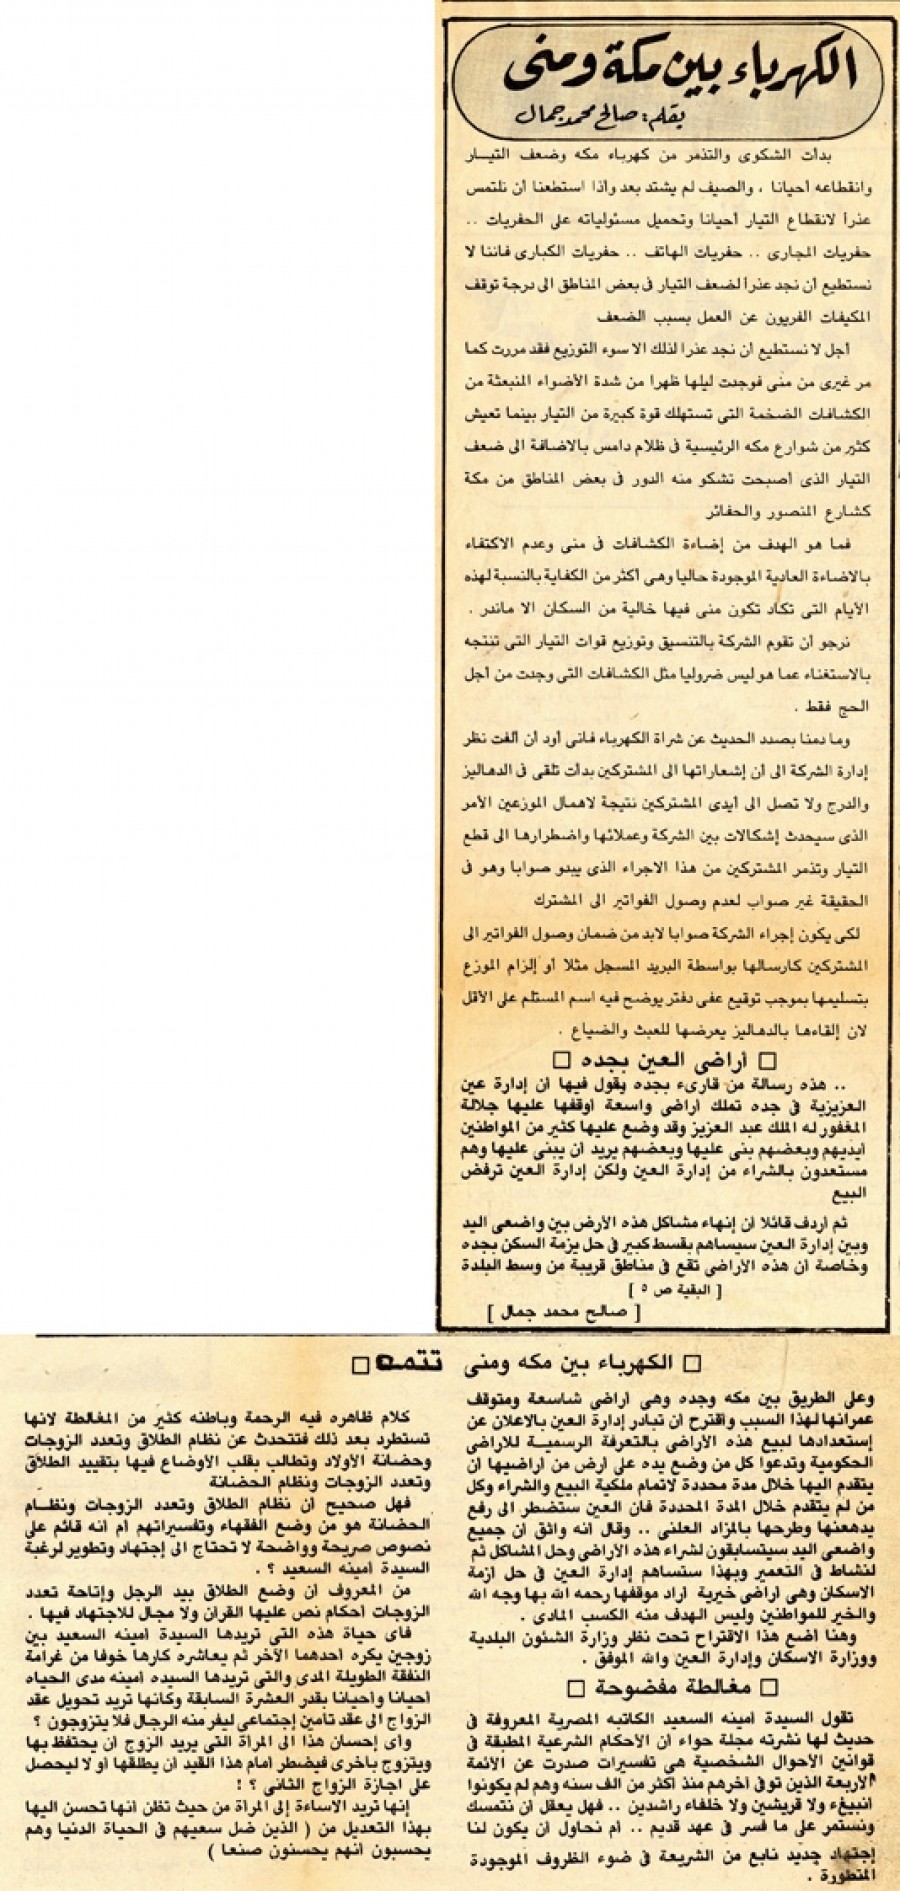 الكهرباء بين مكة ومنى
بقلم: صالح محمد جمال
بدأت الشكوى والتذمر من كهرباء مكه وضعف التيـار
وانقطاعه أحيانا ، والصيف لم يشتد بعد وأذا استطعنا أن نلتمس
عذرا لانقطاع التيار أحيانا وتحميل مسئولياته على الحفريات ..
حفريات المجارى .. حفريات الهاتف .. حفريات الكبارى فاننا لا
نستطيع أن نجد عذرا لضعف التيار فى بعض المناطق الى درجة توقف
المكيفات الفريون عن العمل بسبب الضعف
أجل لا نستطيع أن نجد عذرا لذلك الا سوء التوزيع فقد مررت كما
مر غيرى من منى فوجدت ليلها ظهرا من شدة الأضواء المنبعثة من
الكشافات الضخمة التى تستهلك قوة كبيرة من التيار بينما تعيش
كثير من شوارع مكه الرئيسية فى ظلام دامس بالاضافة الى ضعف
التيار الذى أصبحت تشكو منه الدور فى بعض المناطق من مكة
كشارع المنصور والحفائر
فما هو الهدف من إضاءة الكشافات فى منى وعدم الاكتفاء
بالاضاءة العادية الموجودة حاليا وهى أكثر من الكفاية بالنسبة لهذه
الأيام التى تكاد تكون منى فيها خالية من السكان الا ماندر .
نرجو أن تقوم الشركة بالتنسيق وتوزيع قوات التيار التى تنتجه
بالاستغناء عما هو ليس ضروليا مثل الكشافات التى وجدت من أجل
الحج فقط .
وما دمنا بصدد الحديث عن شراة الكهرباء فانى أود أن ألفت نظر
إدارة الشركة الى أن إشعاراتها الى المشتركين بدأت تلقى فى الدهاليز
والدرج ولا تصل الى أيدى المشتركين نتيجة لاهمال الموزعين الأمر
الذى سيحدث إشكالات بين الشركة وعملائها واضطرارها الى قطع
التيار وتذمر المشتركين من هذا الاجراء الذى يبدو صوابا وهو فى
الحقيقة غير صواب لعدم وصول الفواتير الى المشترك
لكى يكون إجراء الشركة صوابا لابد من ضمان وصول الفواتير الى
المشتركين كارسالها بواسطة البريد المسجل مثلا أو إلزام الموزع
بتسليمها بموجب توقيع عفى دفتر يوضح فيه اسم المستلم على الأقل
لان إلقاءها بالدهاليز يعرضها للعبث والضياع .
□ أراضى العين بجده □
.. هذه رسالة من قارىء بجده يقول فيها أن إدارة عين
العزيزية فى جده تملك أراضى واسعة أوقفها عليها جلالة
المغفور له الملك عبد العزيز وقد وضع عليها كثير من المواطنين
أيديهم وبعضهم بنى عليها وبعضهم يريد أن يبنى عليها وهم
مستعدون بالشراء من إدارة العين ولكن إدارة العين ترفض
البيع
ثم أردف قائلا أن إنهاء مشاكل هذه الأرض بين واضعى اليد
وبين إدارة العين سيساهم بقسط كبير فى حل يزمة السكن بجده
وخاصة أن هذه الأراضى تقع فى مناطق قريبة من وسط البلدة
[ البقية ص ٥ ]
[ صالح محمد جمال ]
□ الكهرباء بين مكه ومنى تتمـه □
وعلى الطريق بين مكه وجده وهى أراضى شاسعة ومتوقف
عمرانها لهذا السبب وأقترح أن تبادر إدارة العين بالاعلان عن
إستعدادها لبيع هذه الأراضى بالتعرفة الرسميـة للاراضى
الحكومية وتدعوا كل من وضع يده على أرض من أراضيها أن
يتقدم اليها خلال مدة محددة لاتمام ملكية البيع والشراء وكل
من لم يتقدم خلال المدة المحددة فان العين ستضطر الى رفع
يدهعنها وطرحها بالمزاد العلنى .. وقال أنه واثق أن جميع
واضعى اليد سيتسابقون لشراء هذه الأراضى وحل المشاكل ثم
لنشاط فى التعمير وبهذا ستساهم إدارة العين فى حل أزمة
الاسكان وهى أراضى خيرية أراد موقفها رحمه الله بها وجه الله
والخير للمواطنين وليس الهدف منه الكسب المادى .
وهنا أضع هذا الاقتراح تحت نظر وزارة الشئون البلدية
ووزارة الاسكان وإدارة العين والله الموفق .
□ مغالطة مفضوحة □
تقول السيدة أمينه السعيد الكاتبه المصرية المعروفة فى
حديث لها نشرته مجلة حواء أن الأحكام الشرعية المطبقة فى
قوانين الأحوال الشخصية هى تفسيرات صدرت عن الأئمة
الأربعة الذين توفى أخرهم منذ أكثر من الف سنه وهم لم يكونوا
أنبيغء ولا قريشين ولا خلفاء راشدين .. فهل يعقل أن نتمسك
ونستمر على ما فسر فى عهد قديم .. أم نحاول أن يكون لنا
إجتهاد جديد نابع من الشريعة فى ضوء الظروف الموجودة
المتطورة .
كلام ظاهره فيه الرحمة وباطنه كثير من المغالطة لانها
تستطرد بعد ذلك فتتحدث عن نظام الطلاق وتعدد الزوجات
وحضانة الأولاد وتطالب بقلب الأوضاع فيها بتقييد الطلاق
وتعدد الزوجات ونظام الحضانة
فهل صحيح أن نظام الطلاق وتعدد الزوجات ونظـام
الحضانة هو من وضع الفقهاء وتفسيراتهم أم أنه قائم على
نصوص صريحة وواضحة لا تحتاج الى إجتهاد وتطوير لرغبة
السيدة أمينه السعيد ؟ .
من المعروف أن وضع الطلاق بيد الرجل وإتاحة تعدد
الزوجات أحكام نص عليها القران ولا مجال للاجتهاد فيها .
فأى حياة هذه التى تريدها السيدة أمينه السعيد بين
زوجين يكره أحدهما الآخر ثم يعاشره كارها خوفا من غرامة
النفقة الطويلة المدى والتى تريدها السيده أمينه مدى الحياه
أحيانا وأحيانا بقدر العشرة السابقة وكأنها تريد تحويل عقد
الزواج الى عقد تأمين إجتماعى ليفر منه الرجال فلا يتزوجون ؟
وأى إحسان هذا الى المرأة التى يريد الزوج أن يحتفظ بها
ويتزوج بأخرى فيضطر أمام هذا القيد أن يطلقها أو لا ليحصل
على اجازة الزواج الثانى ؟ !
إنها تريد الاساءة إلى المرأة من حيث تظن أنها تحسن اليها
بهذا التعديل من ( الذين ضل سعيهم فى الحياة الدنيا وهم
يحسبون أنهم يحسنون صنعا )